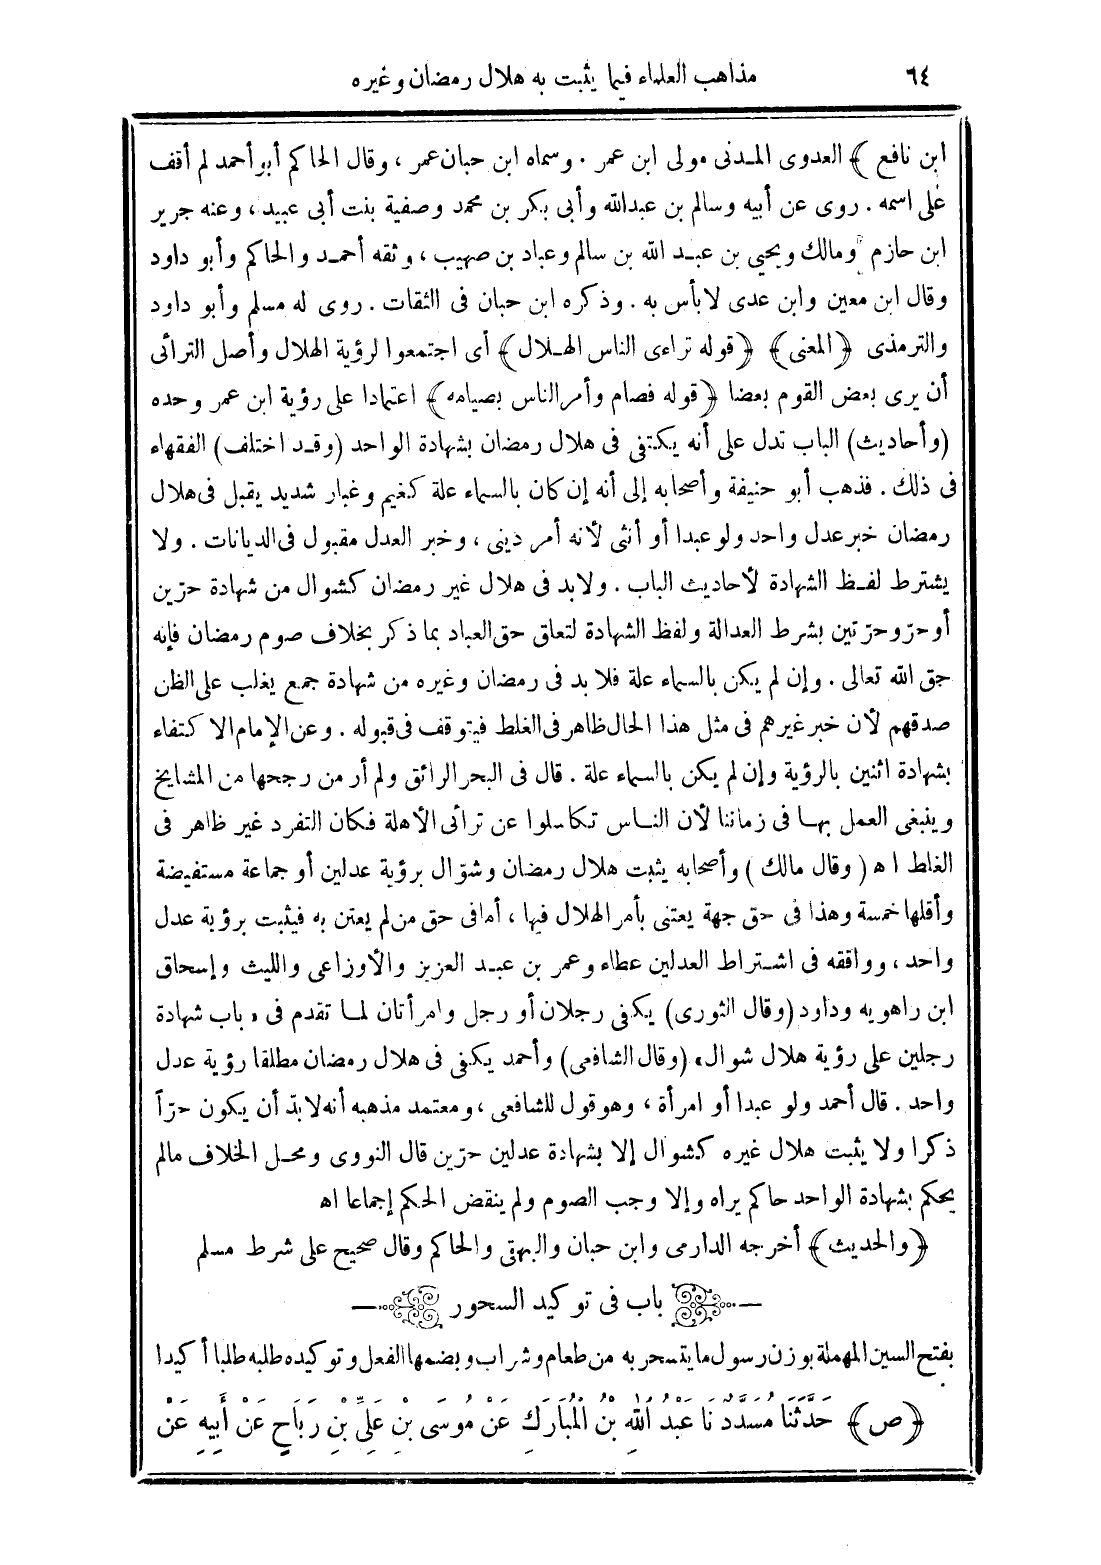 ٦٤ مذاهب العلماء فيما يثبت به هلال رمضان وغيره
ابن نافع﴾ العدوى المدنى مولى ابن عمر . وسماه ابن حبان عمر ، وقال الحاكم أبو أحمد لم أقف
على اسمه . روى عن أبيه وسالم بن عبدالله وأبى بكر بن محمد وصفية بنت أبى عبيد ، وعنه جرير
ابن حازم ومالك ويحيى بن عبد الله بن سالم وعباد بن صهيب ، وثقه أحمد والحاكم وأبو داود
وقال ابن معين وابن عدى لا بأس به . وذكره ابن حبان فى الثقات . روى له مسلم وأبو داود
والترمذى ﴿المعنى﴾ ﴿قوله تراءى الناس الهلال﴾ أى اجتمعوا لرؤية الهلال وأصل الترائى
أن يرى بعض القوم بعضا ﴿قوله فصام وأمر الناس بصيامه﴾ اعتمادا على رؤية ابن عمر وحده
(وأحاديث) الباب تدل على أنه يكتفى فى هلال رمضان بشهادة الواحد (وقد اختلف) الفقهاء
فى ذلك . فذهب أبو حنيفة وأصحابه إلى أنه إن كان بالسماء علة كغيم وغبار شديد يقبل فى هلال
رمضان خبر عدل واحد ولو عبدا أو أنثى لأنه أمر دينى ، وخبر العدل مقبول فى الديانات . ولا
يشترط لفظ الشهادة لأحاديث الباب . ولا بد فى هلال غير رمضان كشوال من شهادة حرّين
أو حرّ وحرّتين بشرط العدالة ولفظ الشهادة لتعلق حق العباد بما ذكر بخلاف صوم رمضان فإنه
حق الله تعالى . وإن لم يكن بالسماء علة فلا بد فى رمضان وغيره من شهادة جمع يغلب على الظن
صدقهم لأن خبر غيرهم فى مثل هذا الحال ظاهر فى الغلط فيتوقف فى قبوله . وعن الإمام الاكتفاء
بشهادة اثنين بالرؤية وإن لم يكن بالسماء علة . قال فى البحر الرائق ولم أر من رجحها من المشايخ
وينبغى العمل بها فى زماننا لأن الناس تكاسلوا عن ترائى الأهلة فكان التفرد غير ظاهر فى
الغلط اه (وقال مالك) وأصحابه يثبت هلال رمضان وشوّال برؤية عدلين أو جماعة مستفيضة
وأقلها خمسة وهذا فى حق جهة يعتنى بأمر الهلال فيها ، أما فى حق من لم يعتن به فيثبت برؤية عدل
واحد ، ووافقه فى اشتراط العدلين عطاء وعمر بن عبد العزيز والأوزاعى والليث وإسحاق
ابن راهويه وداود (وقال الثورى) يكفى رجلان أو رجل وامرأتان لما تقدم فى « باب شهادة
رجلين على رؤية هلال شوال» (وقال الشافعى) وأحمد يكفى فى هلال رمضان مطلقا رؤية عدل
واحد . قال أحمد ولو عبدا أو امرأة ، وهو قول للشافعى ، ومعتمد مذهبه أنه لا بدّ أن يكون حرّا
ذكرا ولا يثبت هلال غيره كشوال إلا بشهادة عدلين حرّين قال النووى ومحل الخلاف مالم
يحكم بشهادة الواحد حاكم يراه وإلا وجب الصوم ولم ينقض الحكم إجماعا اه
﴿والحديث﴾ أخرجه الدارمى وابن حبان والبيهقى والحاكم وقال صحيح على شرط مسلم
باب فى توكيد السحور
بفتح السين المهملة بوزن رسول ما يتسحر به من طعام وشراب وبضمها الفعل وتوكيده طلبه طلبا أكيدا
﴿ص﴾ حَدَّثَنَا مُسَدَّدٌ نَا عَبْدُ اللهِ بْنُ الْمُبَارَكِ عَنْ مُوسَى بْنِ عَلِيِّ بْنِ رَبَاحٍ عَنْ أَبِيهِ عَنْ